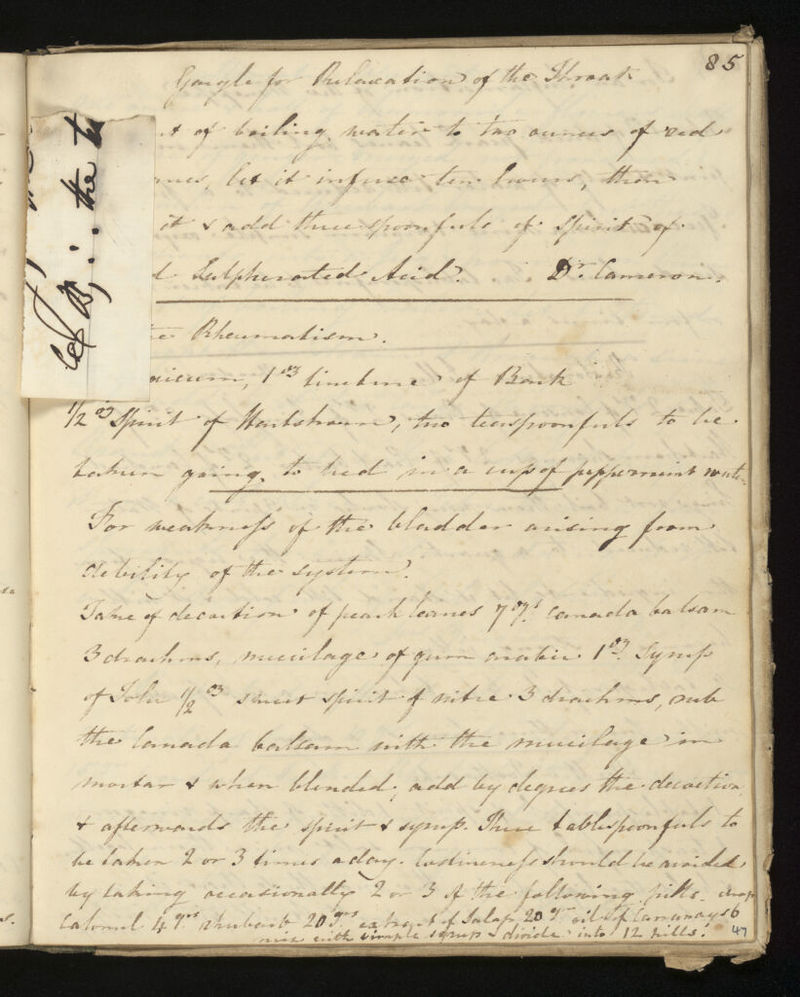 85
Gargle for Relaxation of the Throat
of boiling water to two ounces of red
let it infuse ten hours, then
it & add three spoonfuls of Spirit of
Sulpherated Acid. Dr. Cameron.
Rheumatism.
1 oz tincture of Bark
1/2 oz Spirit of Hartshorn, two teaspoonfuls to be
taken going to bed in a cup of peppermint water
For weakness of the bladder arising from
debility of the system.
Take of decoction of peach leaves 7 ozs. Canada balsam
3 drachms, mucilage of gum arabic 1 oz. Syrup
of Tolu 1/2 oz sweet spirit of nitre 3 drachms, rub
the Canada balsam with the mucilage in
mortar & when blended, add by degrees the decoction
& afterwards the spirit & syrup. Three tablespoonfuls to
be taken 2 or 3 times a day. Costiveness should be avoided
by taking occasionally 2 or 3 of the following pills. drops
Calomel 4 grs. rhubarb 20 grs. extract of Jalap 20 grs oil of Carraways 6
mix with simple syrup & divide into 12 pills.
47
the